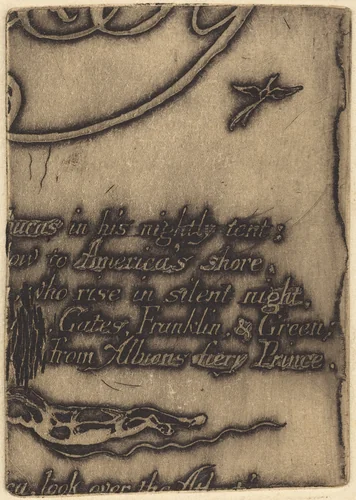 burns in his nightly tent:
low to America's shore.
who rise in silent night.
Gates, Franklin, & Green;
from Albions fiery Prince.
look over the